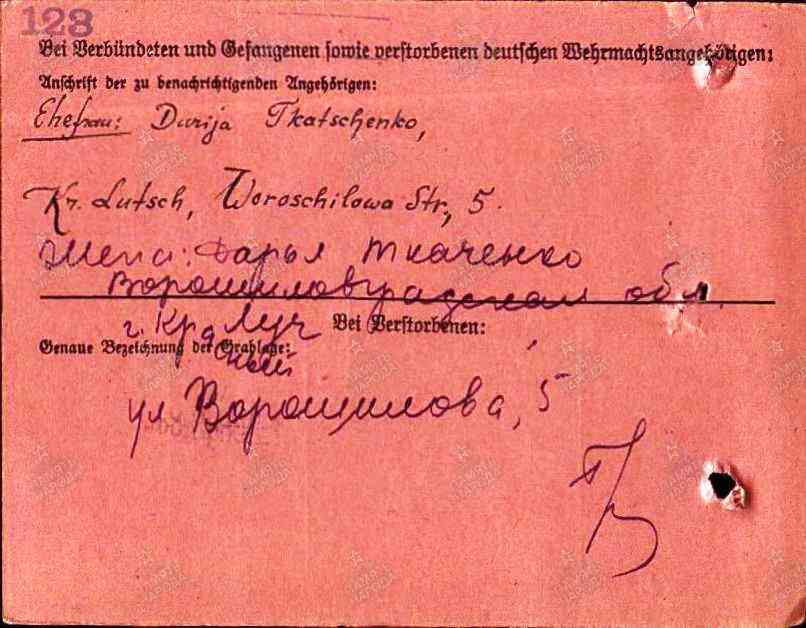 128
Bei Verbündeten und Gefangenen sowie verstorbenen deutschen Wehrmachtsangehörigen:
Anschrift der zu benachrichtigenden Angehörigen:
Ehefrau: Darija Tkatschenko,
Kr. Lutsch, Woroschilowa Str., 5.
Жена: Дарья Ткаченко
Ворошиловградская обл.
г. Красный Луч
Bei Verstorbenen:
Genaue Bezeichnung der Grablage:
ул Ворошилова, 5